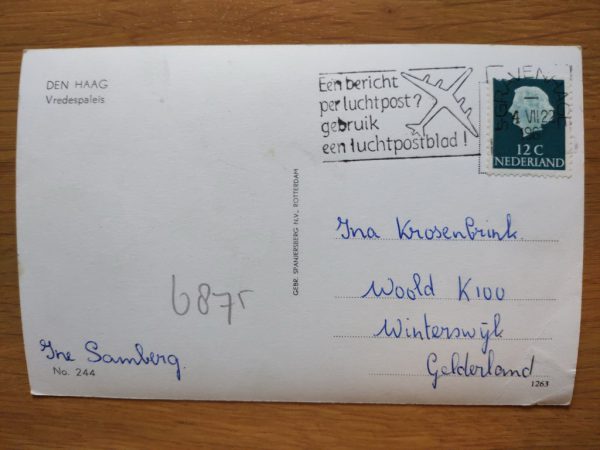 DEN HAAG
Vredespaleis
Een bericht
per luchtpost?
gebruik
een luchtpostblad!
4 VII 22
12 C
NEDERLAND
GEBR. SPANJERSBERG N.V., ROTTERDAM
Ina Krosenbrink
Woold K100
Winterswijk
Gelderland
6875
Ine Samberg.
No. 244
1263